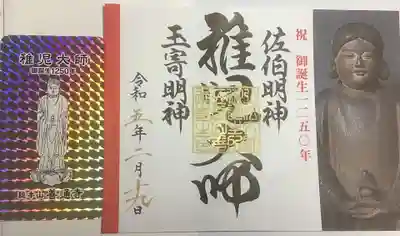 稚児大師
御誕生1250年
総本山善通寺
祝 御誕生一二五〇年
佐伯明神
稚児大師
玉寄明神
令和五年二月九日